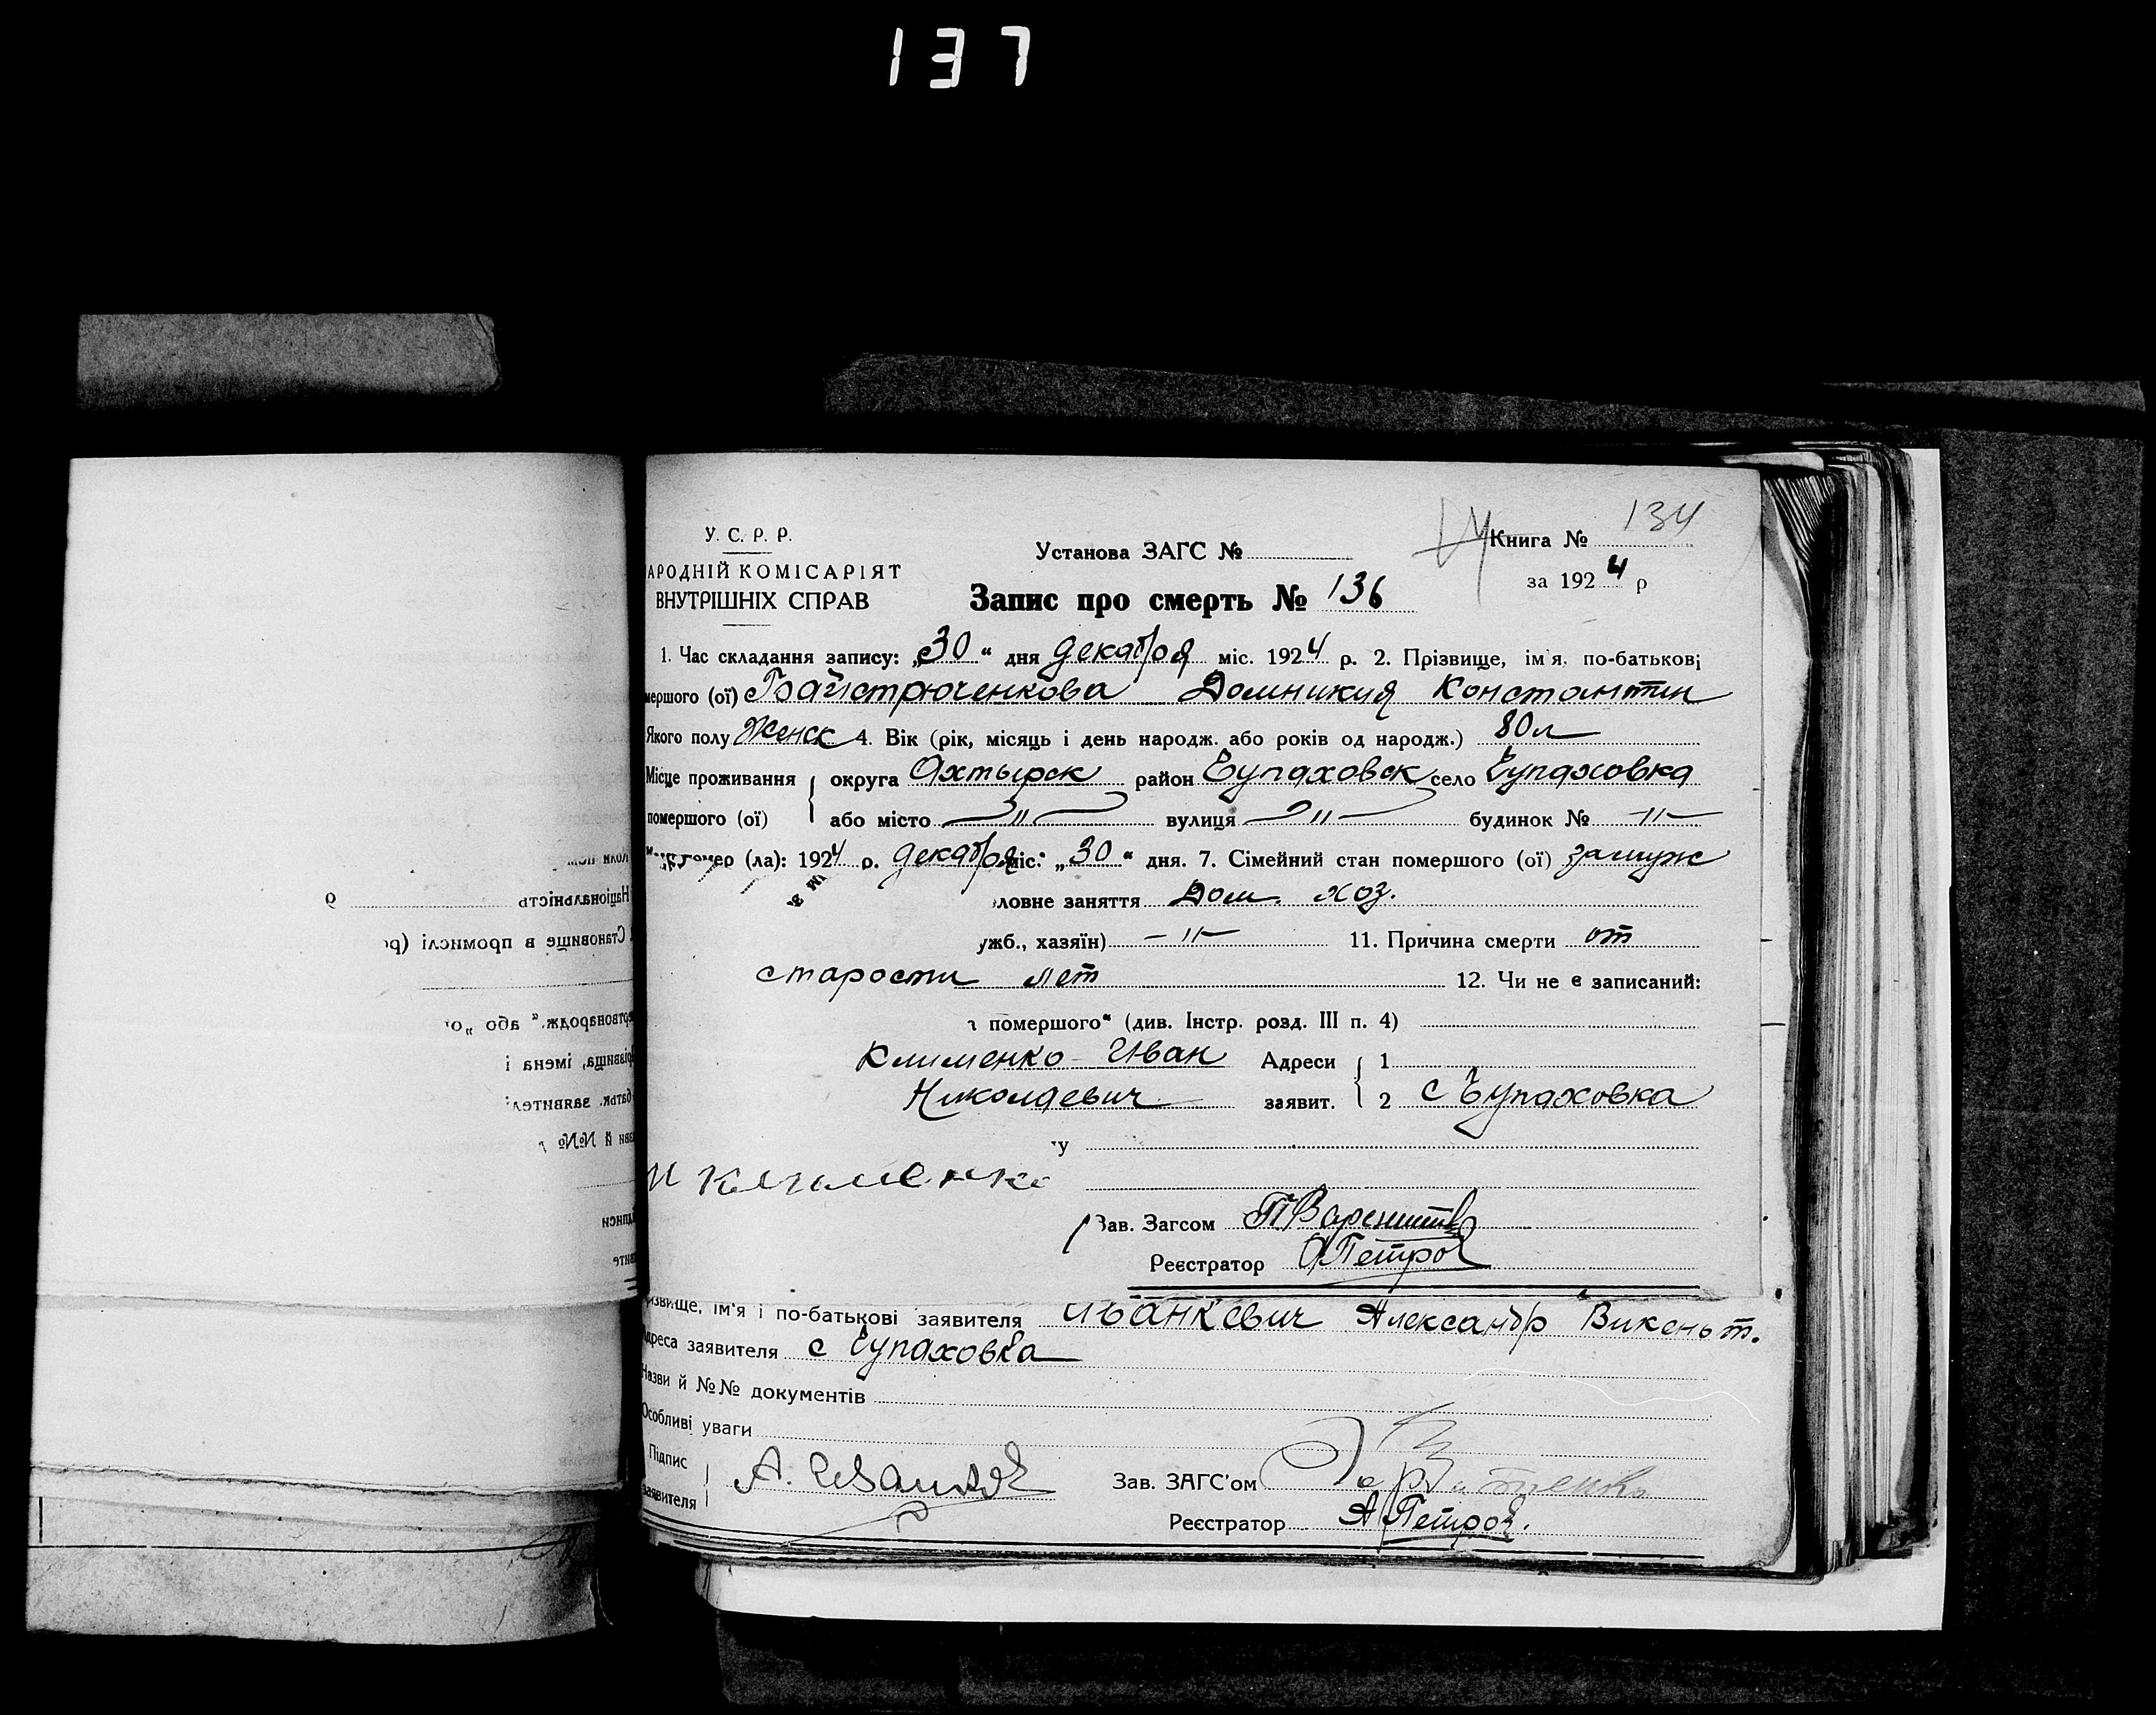 137
У. С. Р. Р.
АРОДНІЙ КОМІСАРІЯТ
ВНУТРІШНІХ СПРАВ
Установа ЗАГС №
Книга № 134
за 1924 р
Запис про смерть № 136
1. Час складання запису: „30“ дня декабря міс. 1924 р. 2. Прізвище, ім'я, по-батькові
мершого (ої) Байстрюченкова Домникия Константин
Якого полу Женск 4. Вік (рік, місяць і день народж. або років од народж.) 80 л
Місце проживання округа Ахтырск район Чупаховск село Чупаховка
помершого (ої) або місто -"- вулиця -"- будинок № -"-
мер (ла): 1924 р. декабря міс. „30“ дня. 7. Сімейний стан помершого (ої) замуж
ловне заняття Дом. хоз.
ужб., хазяїн) -"- 11. Причина смерти от
старости лет 12. Чи не є записаний:
помершого“ (див. Інстр. розд. III п. 4)
Клименко Иван Адреси 1
Николаевич заявит. 2 с Чупаховка
у
И Клименко
Зав. Загсом
Реєстратор АПетров
різвище, ім'я і по-батькові заявителя Иванкевич Александр Викеньт.
дреса заявителя с Чупаховка
Назви й №№ документів
Особливі уваги
Підпис
заявителя А.
Зав. ЗАГС'ом
Реєстратор АПетров.
Національність 9
Становище в промислі (ро
ертвонародж.“ або „о
різвища, імена і
батьк. заявител
зви й №№
ідписи